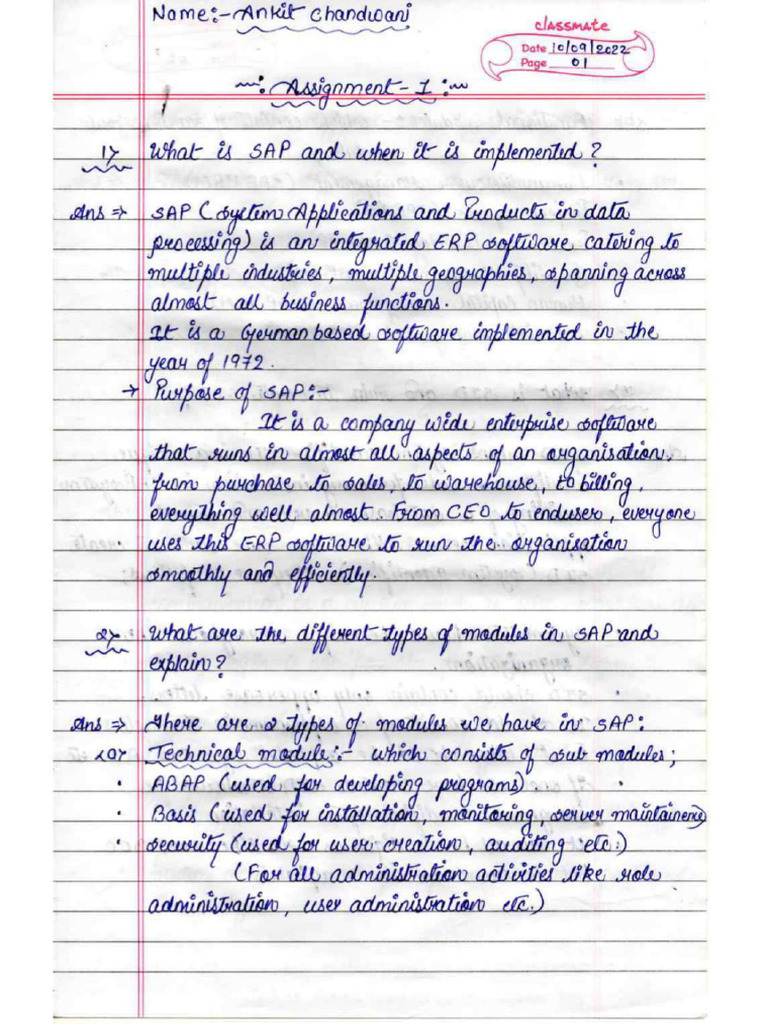 Name:- Ankit Chandwani
classmate
Date 10/09/2022
Page 01
~: Assignment-1 :~
1> What is SAP and when it is implemented?
Ans ⇒ SAP (System Applications and Products in data
processing) is an integrated ERP software, catering to
multiple industries, multiple geographies, spanning across
almost all business functions.
It is a German based software implemented in the
year of 1972.
→ Purpose of SAP:-
It is a company wide enterprise software
that runs in almost all aspects of an organisation,
from purchase to sales, to warehouse, to billing,
everything well almost. From CEO to enduser, everyone
uses this ERP software to run the organisation
smoothly and efficiently.
2> What are the different types of modules in SAP and
explain?
Ans ⇒ There are 2 types of modules we have in SAP:
<a> Technical module:- which consists of sub modules;
• ABAP (used for developing programs).
• Basis (used for installation, monitoring, server maintainence)
• Security (used for user creation, auditing etc.)
(For all administration activities like role
administration, user administration etc.)